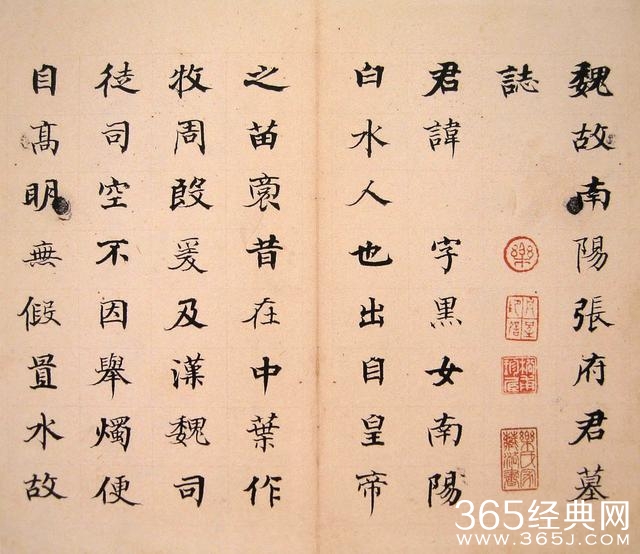 魏故南陽張府君墓
誌
君諱 字黑女南陽
白水人也出自皇帝
之苗裔昔在中葉作
牧周殷爰及漢魏司
徒司空不因舉燭便
自髙明無假置水故
365经典网
WWW.365J.COM